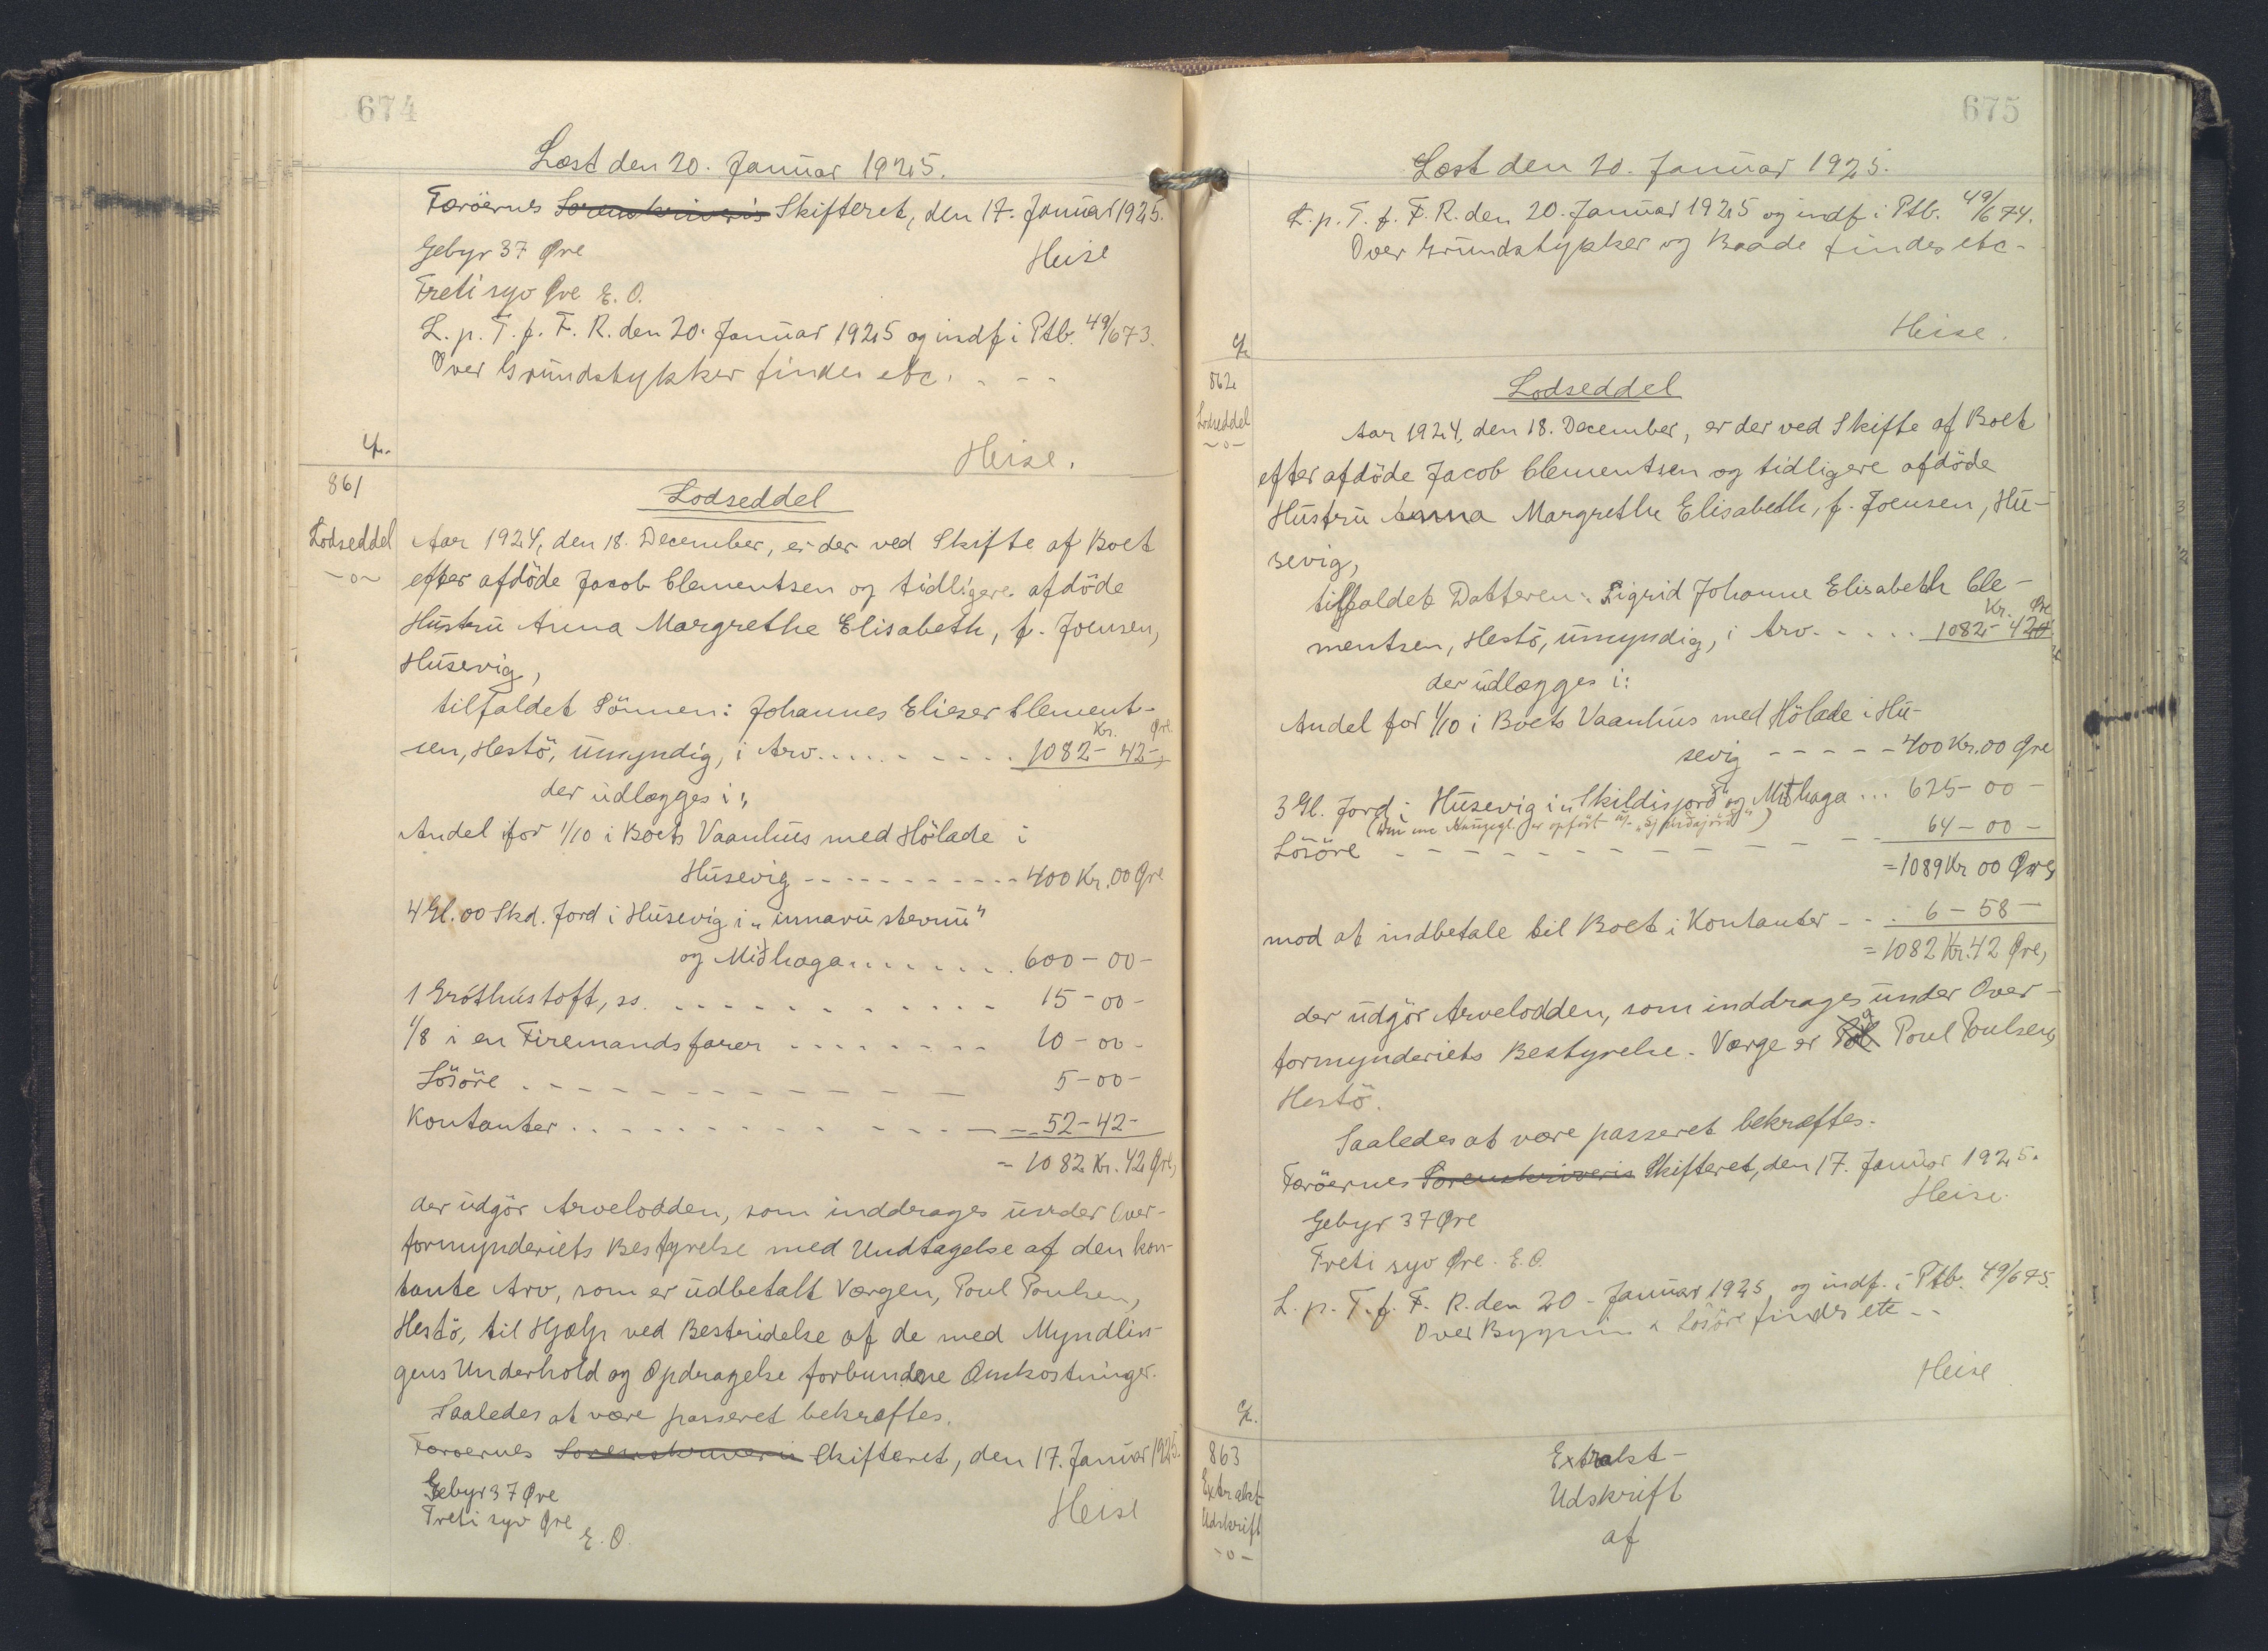 674
Læst den 20. Januar 1925.
Færöernes Sorenskriveris Skifteret, den 17. Januar 1925.
Gebyr 37 Øre
Heise
Treti syv Øre E. O.
L. p. T. f. F. R. den 20. Januar 1925 og indf i Ptb. 49/673.
Over Grundstykker findes etc. - - -
Heise.
861
Lodseddel
-o-
Lodseddel
Aar 1924, den 18. December, er der ved Skifte af Boet
efter afdöde Jacob Clementsen og tidligere afdöde
Hustru Anna Margrethe Elisabeth, f. Joensen,
Husevig,
tilfaldet Sönnen: Johannes Elieser Clement-
Kr. Øre
sen, Hestö, umyndig, i Arv. . . . . . . . . 1082- 42-,
der udlægges i:
Andel for 1/10 i Boets Vaanhus med Hölade i
Husevig - - - - - - - - - - 400 Kr. 00 Øre
4 Gl. 00 Skd. Jord i Husevig i "innaru stevnu"
og Miðhaga . . . . . . . 600-00-
1 Gróthústoft, ss. - - - - - - - - - - 15-00-
1/8 i en Firemandsfarer - - - - - - - - 10-00-
Lösöre . - - - - - - - - - - - 5-00-
Kontanter . . . . . . . - - - - - 52-42-
= 1082 Kr. 42 Øre,
der udgör Arvelodden, som inddrages under Over-
formynderiets Bestyrelse med Undtagelse af den kon-
tante Arv, som er udbetalt Værgen, Poul Poulsen,
Hestö, til Hjælp ved Bestridelse af de med Myndlin-
gens Underhold og Opdragelse forbundne Omkostninger.
Saaledes at være passeret bekræftes.
Færöernes Sorenskriveris Skifteret, den 17. Januar 1925.
Gebyr 37 Øre
Treti syv Øre
E. O.
Heise
675
Læst den 20. Januar 1925.
L. p. T. f. F. R. den 20. Januar 1925 og indf i Ptb. 49/674.
Over Grundstykker og Baade findes etc -
Heise.
862
Lodseddel
-o-
Lodseddel
Aar 1924, den 18. December, er der ved Skifte af Boet
efter afdöde Jacob Clementsen og tidligere afdöde
Hustru Anna Margrethe Elisabeth, f. Joensen, Hu-
sevig,
tilfaldet Datteren: Sigrid Johanne Elisabeth Cle-
Kr. Øre
mentsen, Hestö, umyndig, i Arv. - . . . . 1082- 42
der udlægges i:
Andel for 1/10 i Boets Vaanhus med Hölade i Hu-
sevig - - - - - 400 Kr. 00 Øre
3 Gl. Jord i Husevig i "Skildisjörð" og Miðhaga . . . 625-00-
Lösöre - - - - - - - - - - - - 64-00-
= 1089 Kr 00 Øre,
mod at indbetale til Boet i Kontanter - - . 6-58-
= 1082 Kr. 42 Øre,
der udgör Arvelodden, som inddrages under Over-
formynderiets Bestyrelse. Værge er Poul Poulsen,
Hestö.
Saaledes at være passeret bekræftes.
Færöernes Sorenskriveris Skifteret, den 17. Januar 1925.
Heise.
Gebyr 37 Øre
Treti syv Øre. E. O.
L. p. T. f. F. R. den 20. Januar 1925 og indf. i Ptb. 49/675.
Over Bygning & Lösöre findes etc - -
Heise
863
Extrakt
Udskrift
-o-
Extrakt-
Udskrift
af